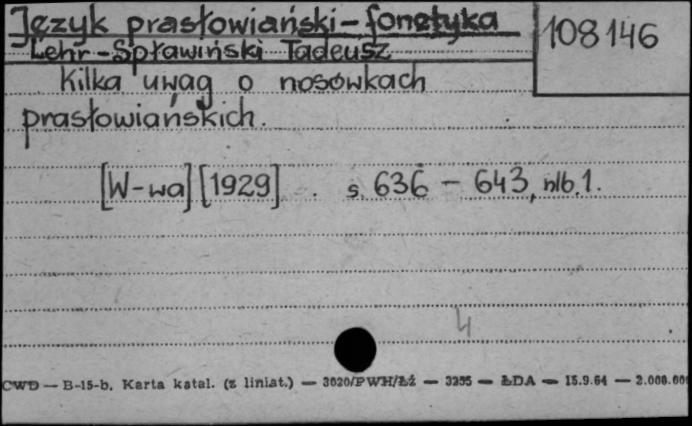 Język prasłowiański - fonetyka
108146
Lehr-Spławiński Tadeusz
Kilka uwag o nosówkach
prasłowiańskich.
[W-wa] [1929] . s. 636 - 643, nlb. 1.
4
CWD — B-15-b. Karta katal. (z liniat.) — 3020/PWH/Łź — 3255 — ŁDA — 15.9.64 — 2.000.000